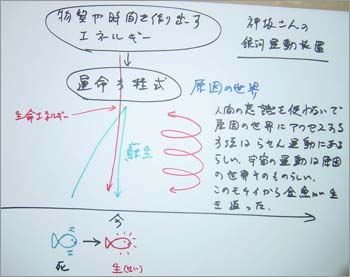 物質や時間を作り出す
エネルギー
神坂さんの
銀河運動装置
運命方程式
原因の世界
生命エネルギー
蘇生
人間の意識を使わないで
原因の世界にアクセスする
方法はらせん運動にある
らしい。宇宙の運動は原因
の世界そのものらしい。
このモデイから金魚が生
き返った.
今
死
生(せい)